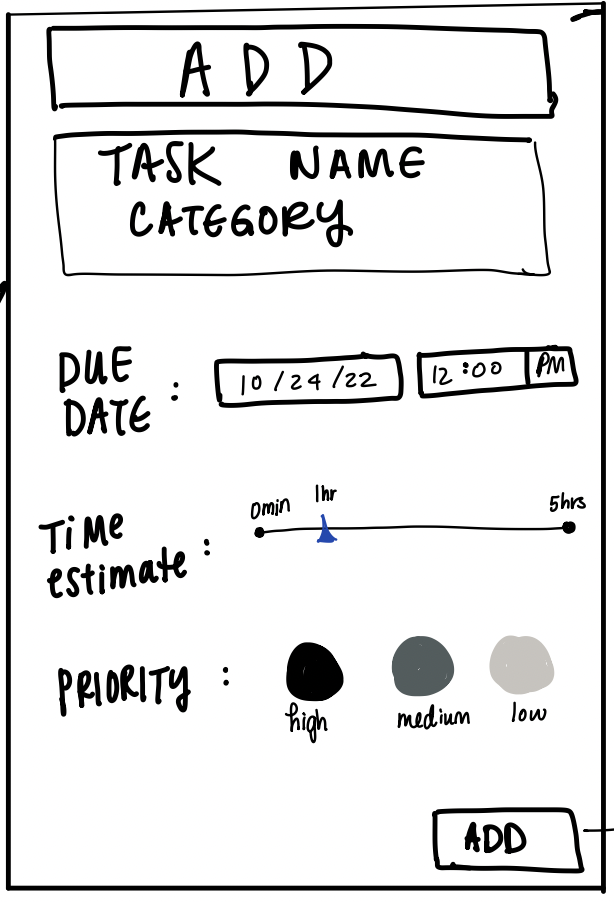 ADD
TASK NAME
CATEGORY
DUE
DATE :
10/24/22
12:00 PM
TiMe
estimate :
0min
1hr
5hrs
PRIORITY :
high
medium
low
ADD